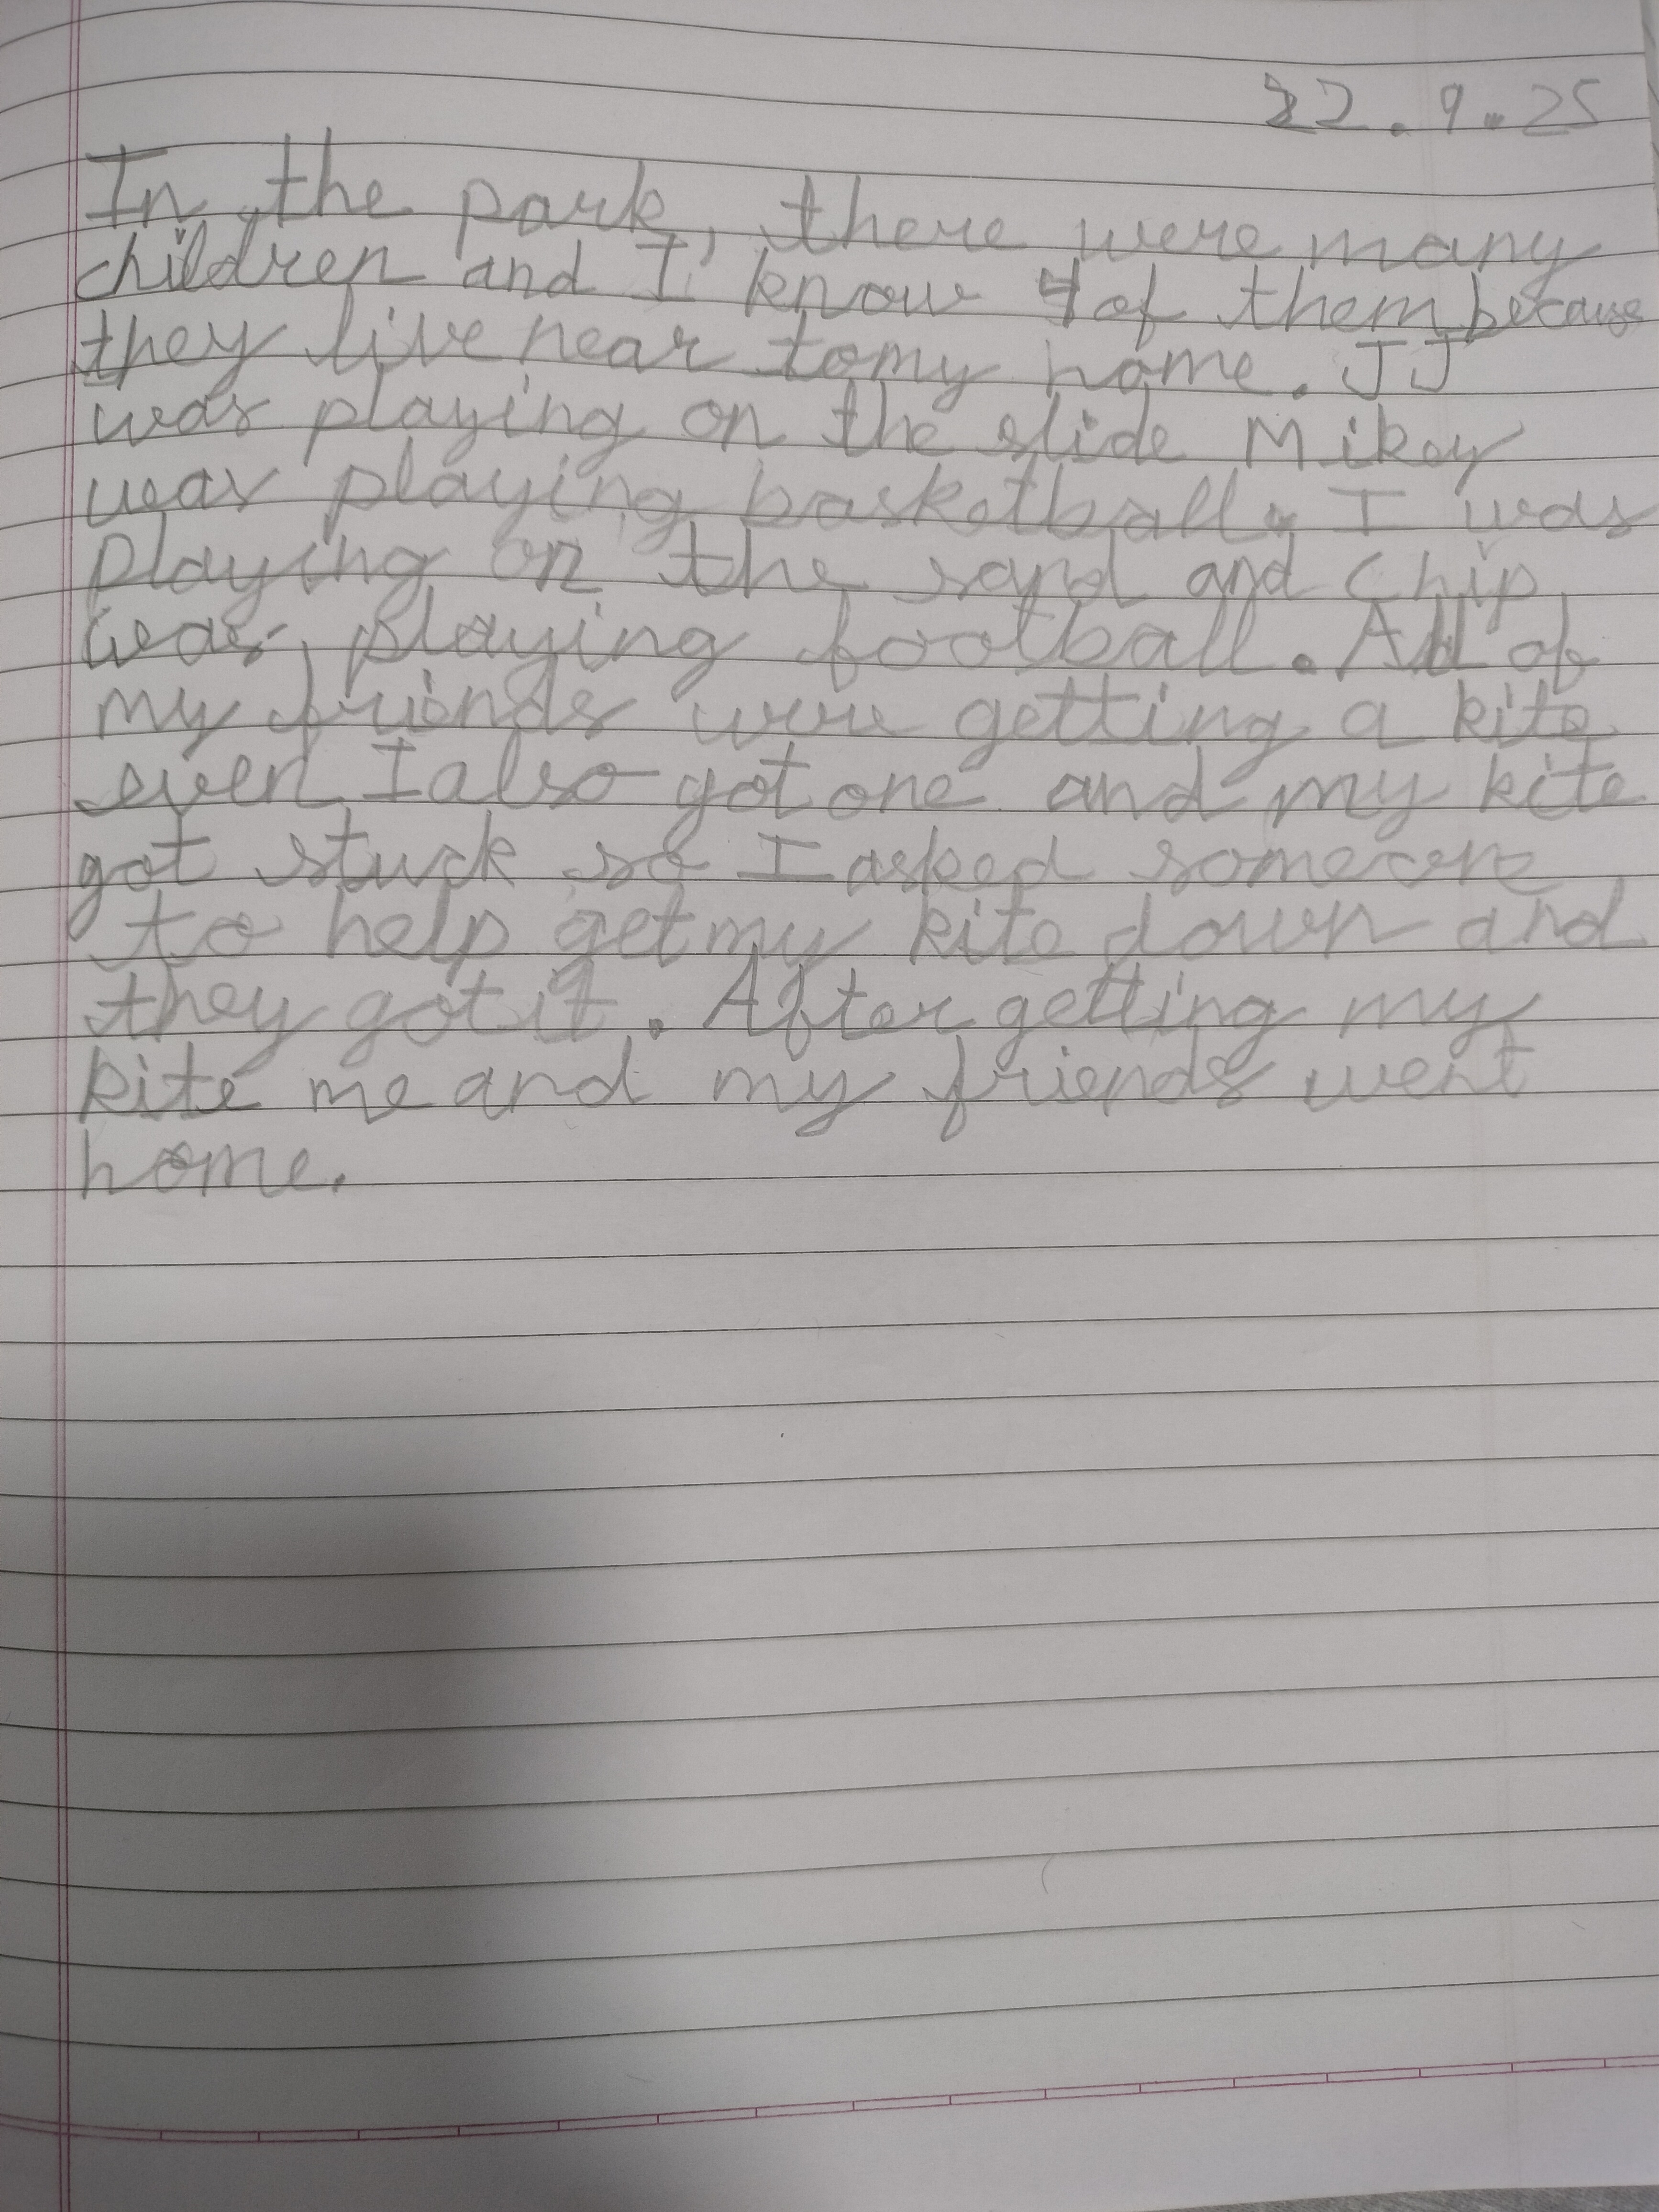 22.9.25
In the park, there were many
children and I know 4 of them because
they live near to my home. JJ
was playing on the slide Mikey
was playing basketball, I was
playing on the sand and Chip
was playing football. All of
my friends were getting a kite
even I also got one and my kite
got stuck so I asked someone
to help get my kite down and
they got it. After getting my
kite me and my friends went
home.